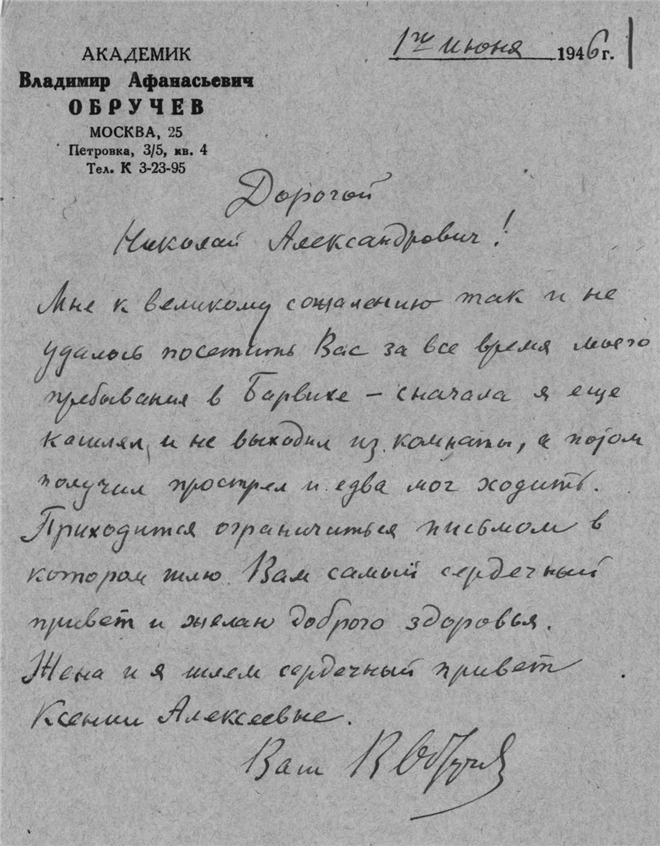 АКАДЕМИК
Владимир Афанасьевич
ОБРУЧЕВ
МОСКВА, 25
Петровка, 3/5, кв. 4
Тел. К 3-23-95
1го июня 1946 г.
Дорогой
Николай Александрович!
Мне к великому сожалению так и не
удалось посетить Вас за все время моего
пребывания в Барвихе – сначала я еще
кашлял и не выходил из комнаты, а потом
получил прострел и едва мог ходить.
Приходится ограничиться письмом в
котором шлю Вам самый сердечный
привет и желаю доброго здоровья.
Жена и я шлем сердечный привет
Ксении Алексеевне.
Ваш В Обручев